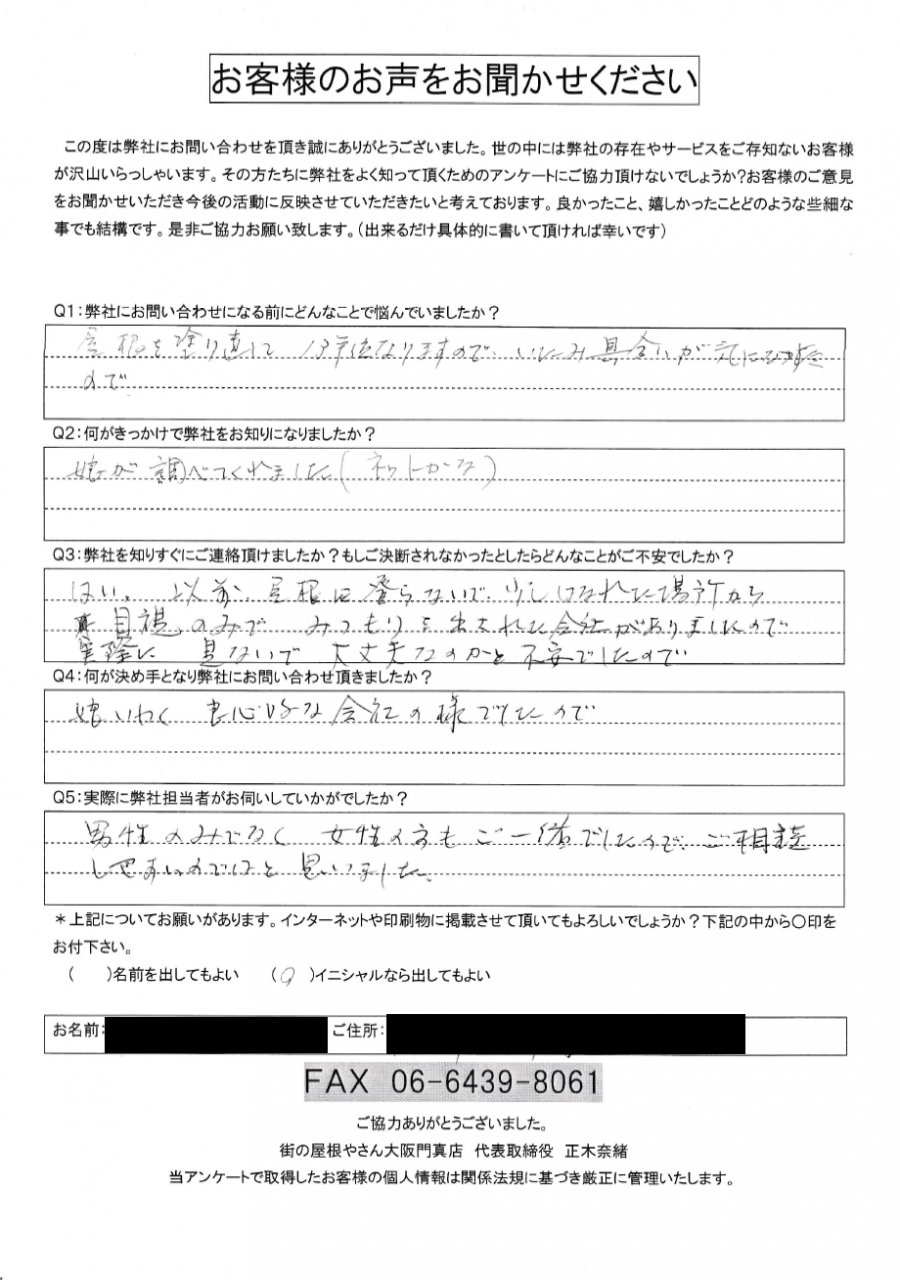 お客様のお声をお聞かせください
この度は弊社にお問い合わせを頂き誠にありがとうございました。世の中には弊社の存在やサービスをご存知ないお客様
が沢山いらっしゃいます。その方たちに弊社をよく知って頂くためのアンケートにご協力頂けないでしょうか?お客様のご意見
をお聞かせいただき今後の活動に反映させていただきたいと考えております。良かったこと、嬉しかったことどのような些細な
事でも結構です。是非ご協力お願い致します。(出来るだけ具体的に書いて頂ければ幸いです)
Q1:弊社にお問い合わせになる前にどんなことで悩んでいましたか?
屋根を塗り直して 13年位なりますので、いたみ具合いが気になった
ので
Q2:何がきっかけで弊社をお知りになりましたか?
娘が調べてくれました(ネットかな)
Q3:弊社を知りすぐにご連絡頂けましたか?もしご決断されなかったとしたらどんなことがご不安でしたか?
はい。 以前、屋根に登らないで、少しはなれた場所から
目視のみで みつもりを出された会社がありましたので
実際に 見ないで 大丈夫なのかと不安でしたので
Q4:何が決め手となり弊社にお問い合わせ頂きましたか?
娘いわく 良心的な会社の様でしたので
Q5:実際に弊社担当者がお伺いしていかがでしたか?
男性のみでなく 女性の方もご一緒でしたので、ご相談
しやすいのではと思いました。
*上記についてお願いがあります。インターネットや印刷物に掲載させて頂いてもよろしいでしょうか?下記の中から〇印を
お付下さい。
( )名前を出してもよい (○)イニシャルなら出してもよい
お名前: ご住所:
FAX 06-6439-8061
ご協力ありがとうございました。
街の屋根やさん大阪門真店 代表取締役 正木奈緒
当アンケートで取得したお客様の個人情報は関係法規に基づき厳正に管理いたします。